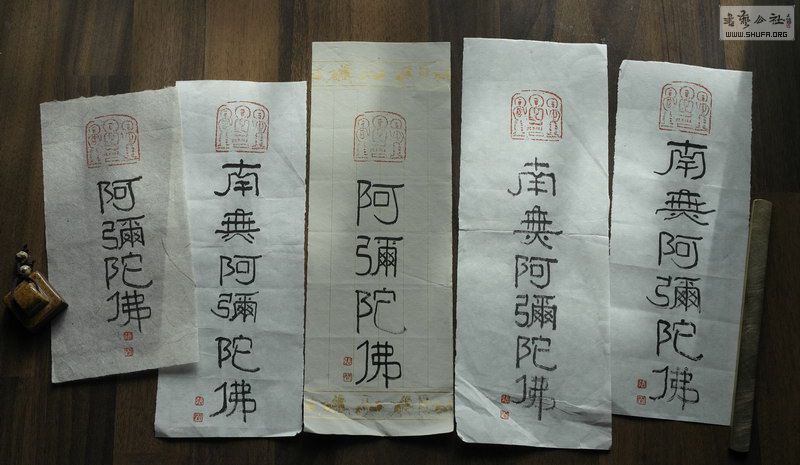 阿彌陀佛
南無阿彌陀佛
阿彌陀佛
南無阿彌陀佛
南無阿彌陀佛
WWW.SHUFA.ORG